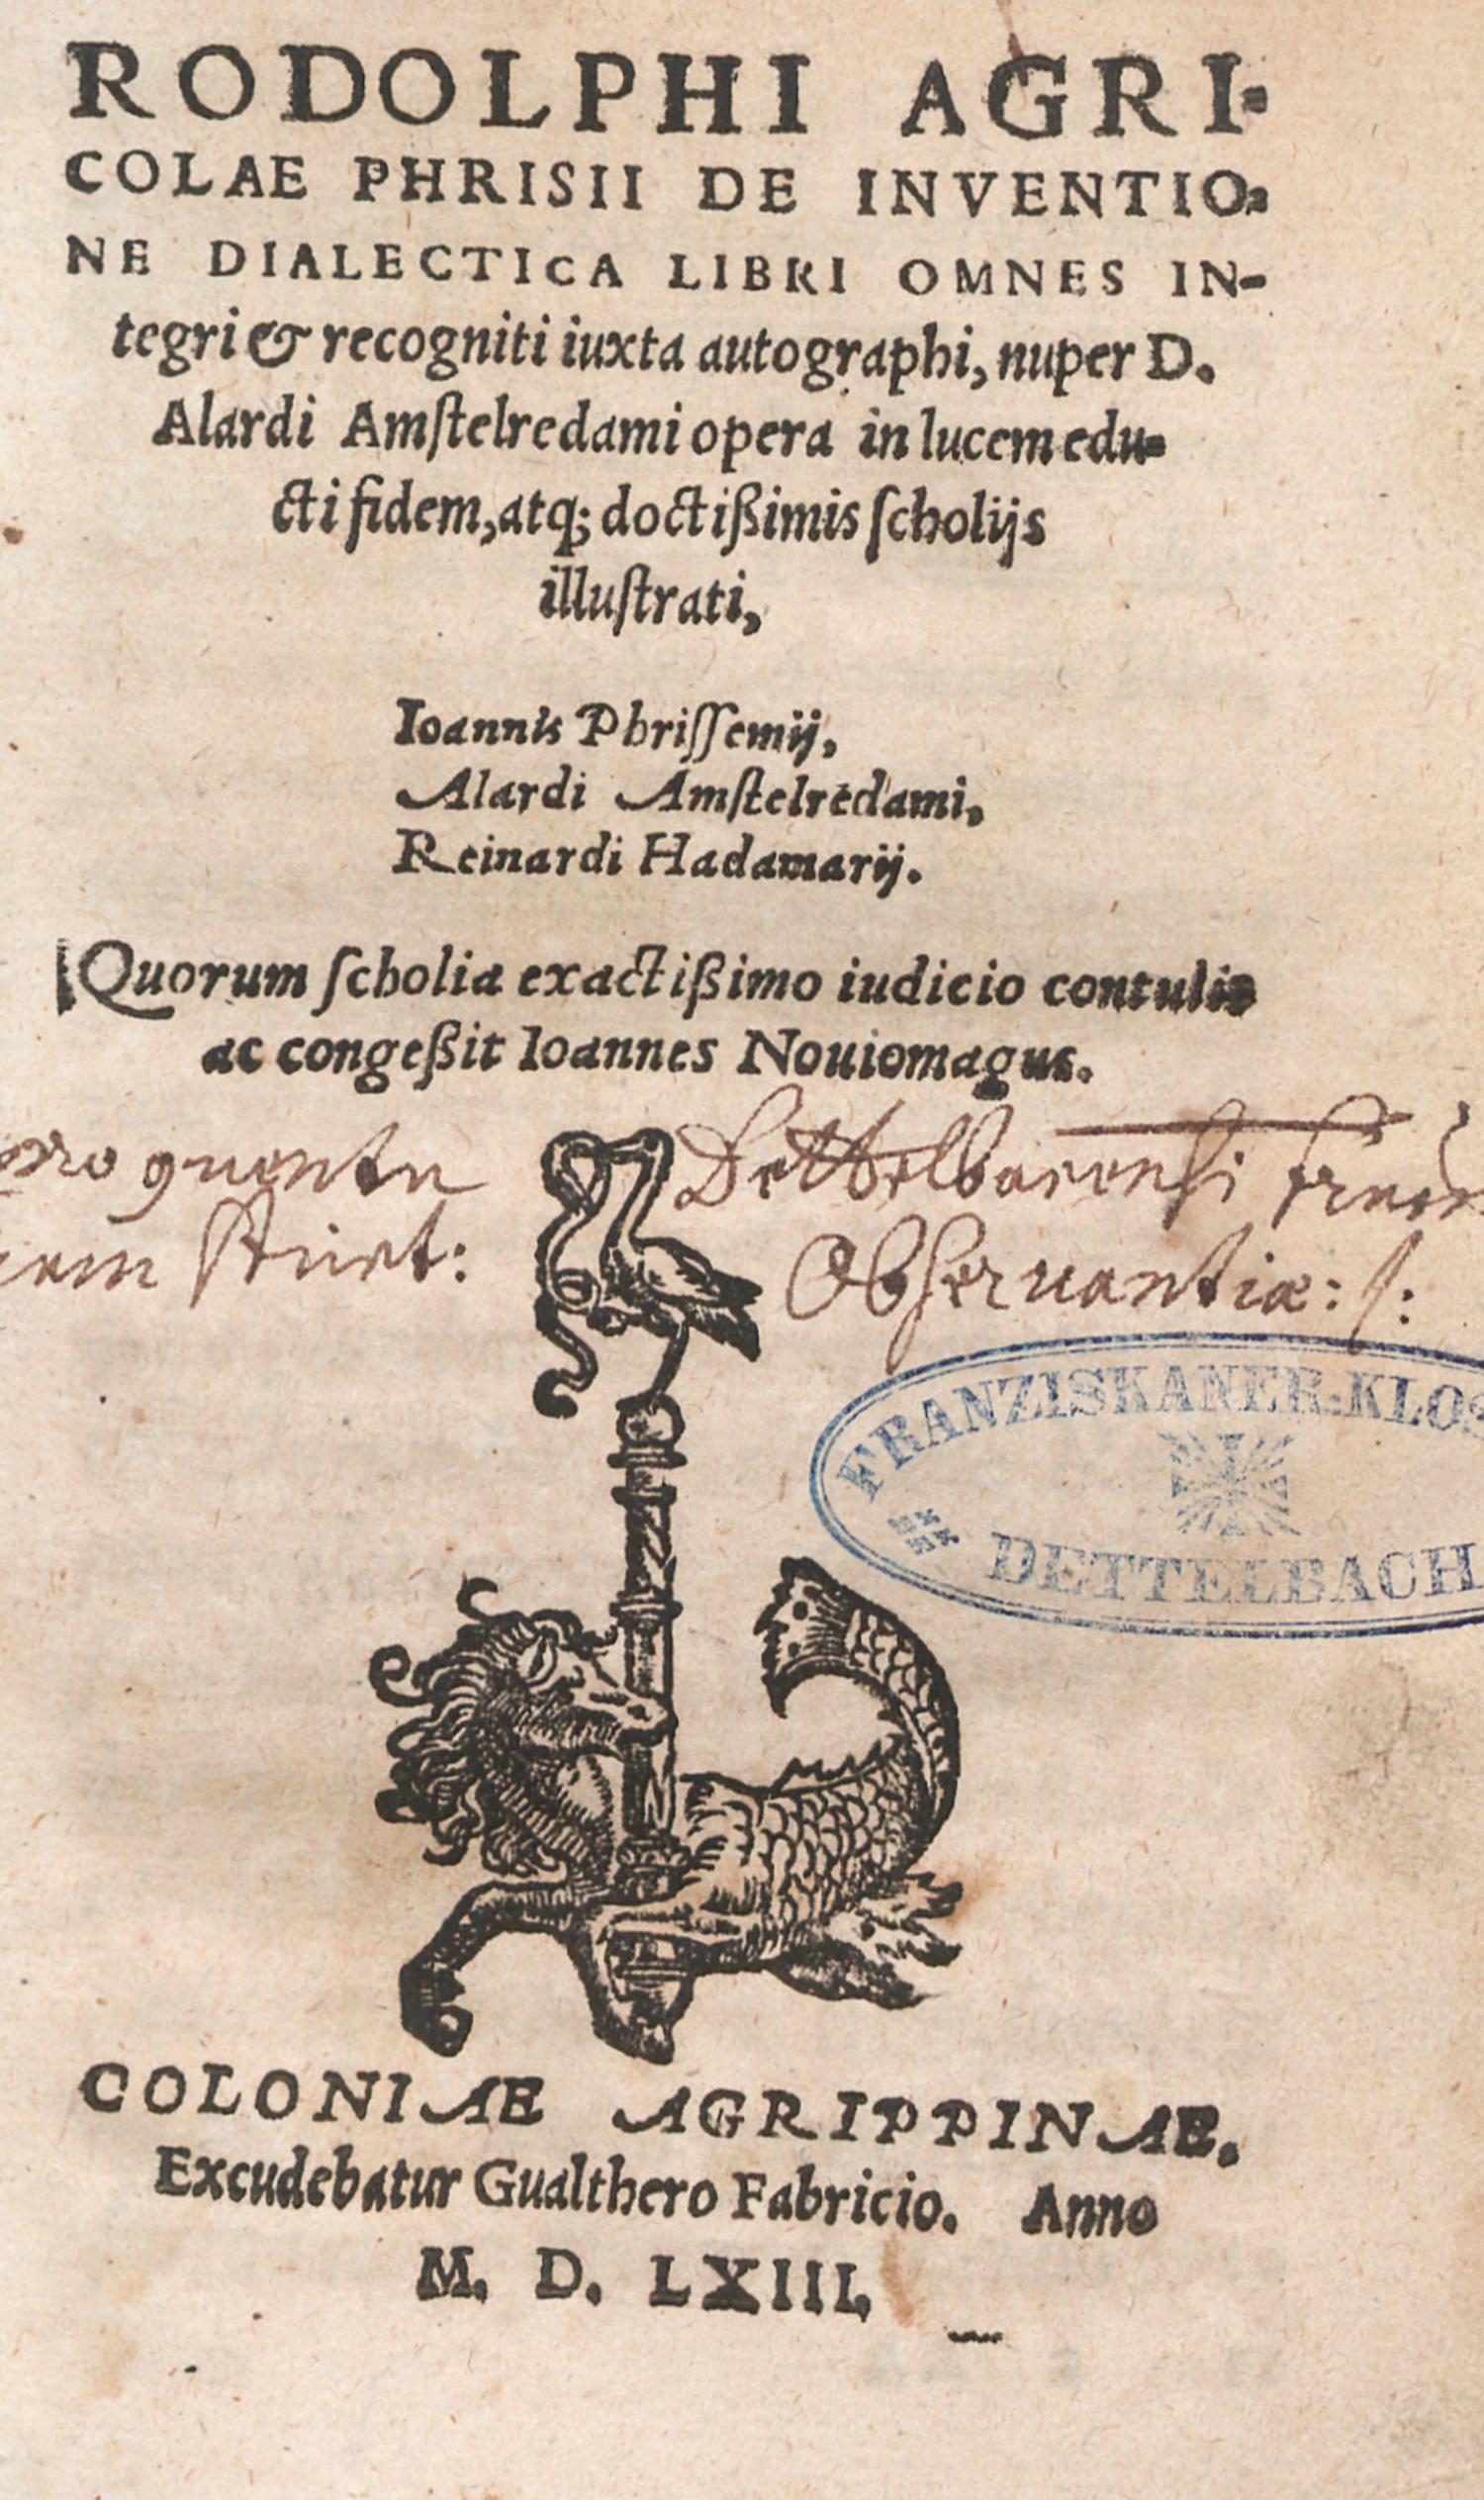 RODOLPHI AGRI-
COLAE PHRISII DE INVENTIO-
NE DIALECTICA LIBRI OMNES IN-
tegri & recogniti iuxta autographi, nuper D.
Alardi Amſtelredami opera in lucem edu-
cti fidem, atq; doctißimis ſcholijs
illuſtrati,
Ioannis Phriſſemij,
Alardi Amſtelredami,
Reinardi Hadamarij.
Quorum ſcholia exactißimo iudicio contulit
ac congeßit Ioannes Nouiomagus.
pro quentu
Dettelbacensi
Obſeruantiæ:
FRANZISKANER-KLOS
DETTELBACH
COLONIAE AGRIPPINAE.
Excudebatur Gualthero Fabricio. Anno
M. D. LXIII.